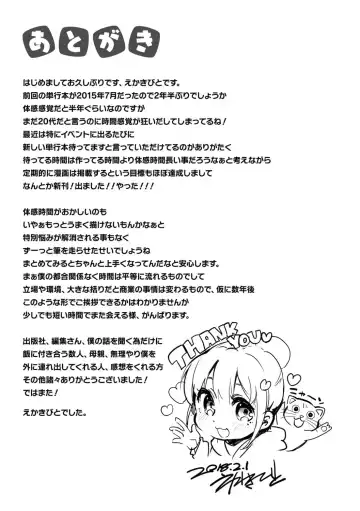 あとがき
はじめましてお久しぶりです、えかきびとです。
前回の単行本が2015年7月だったので2年半ぶりでしょうか
体感感覚だと半年ぐらいなのですが
まだ20代だと言うのに時間感覚が狂いだしてしまってるね！
最近は特にイベントに出るたびに
新しい単行本待ってますと言っていただけてるのがありがたく
待ってる時間は作ってる時間より体感時間長い事だろうなぁと考えながら
定期的に漫画は掲載するという目標もほぼ達成しまして
なんとか新刊！出ました！！やった！！！
体感時間がおかしいのも
いやぁもっとうまく描けないもんかなぁと
特別悩みが解消される事もなく
ずーっと筆を走らたせいでしょうね
まとめてみるとちゃんと上手くなってんだなと安心します。
まぁ僕の都合関係なく時間は平等に流れるものでして
立場や環境、大きな括りだと商業の事情は変わるもので、仮に数年後
このような形でご挨拶できるかはわかりませんが
少しでも短い時間でまた会える様、がんばります。
出版社、編集さん、僕の話を聞く為だけに
飯に付き合う数人、母親、無理やり僕を
外に連れ出してくれる人、感想をくれる方
その他諸々ありがとうございました！
ではまた！
えかきびとでした。
THANK YOUu
2018.2.1
えかきびと